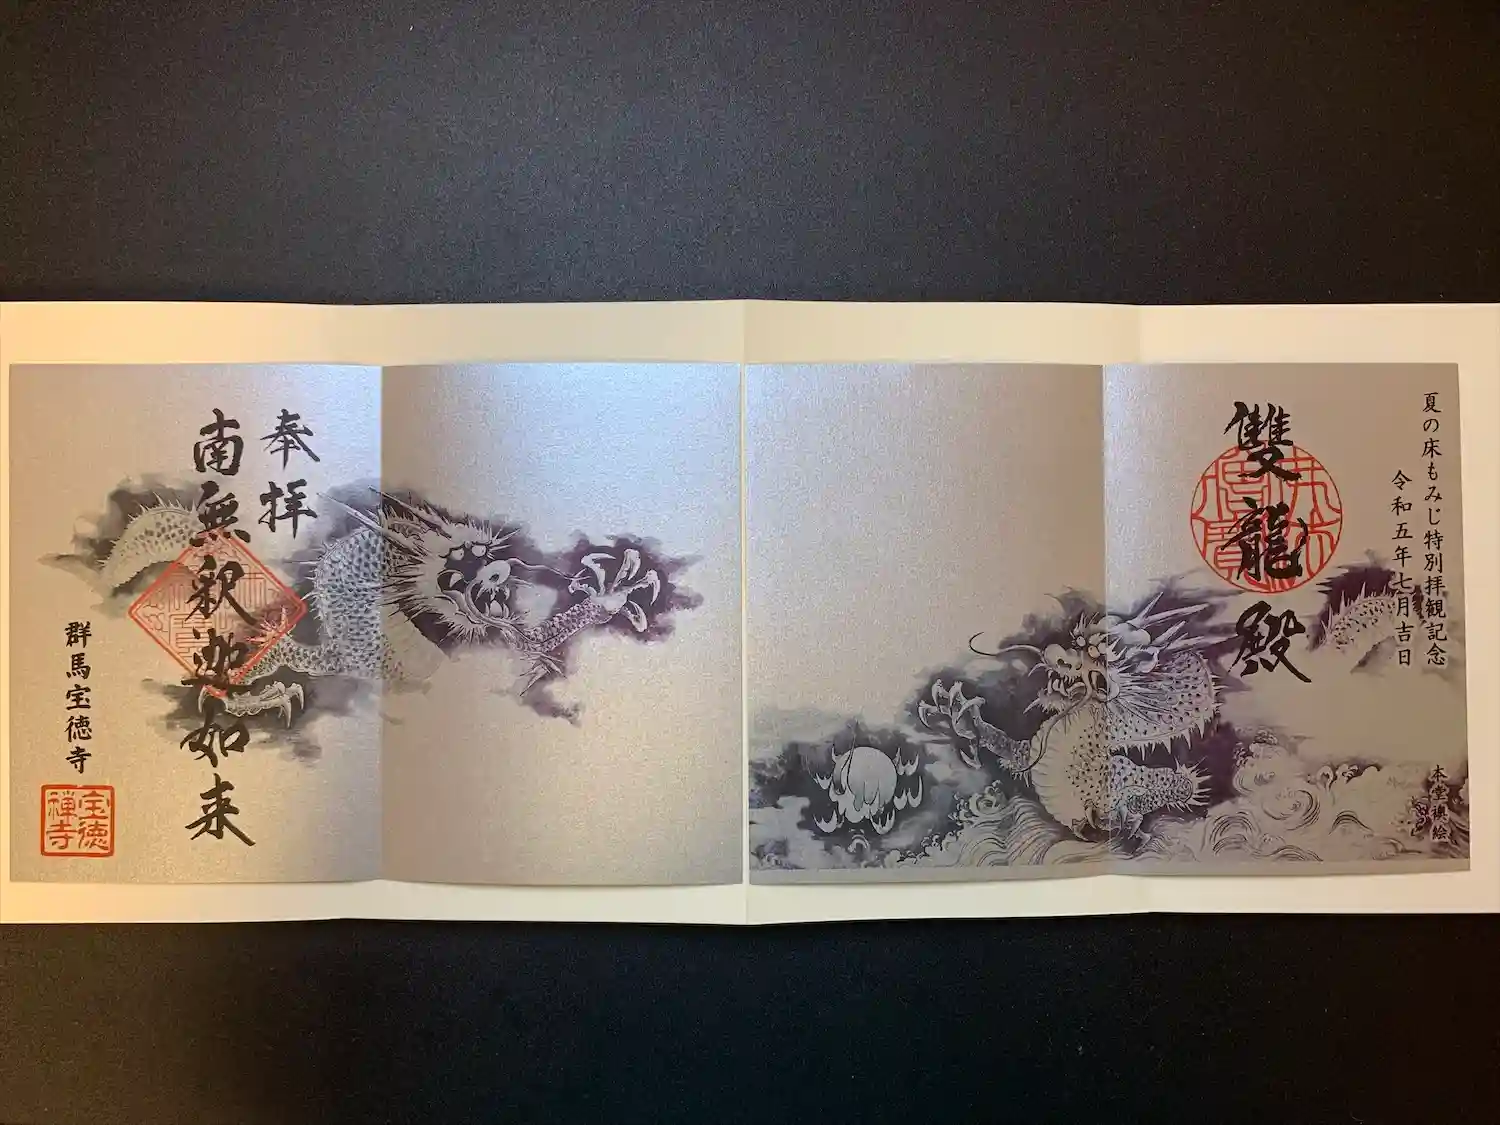 夏の床もみじ特別拝観記念
令和五年七月吉日
雙龍殿
本堂襖絵
奉拝
南無釈迦如来
群馬宝徳寺
宝徳
禅寺